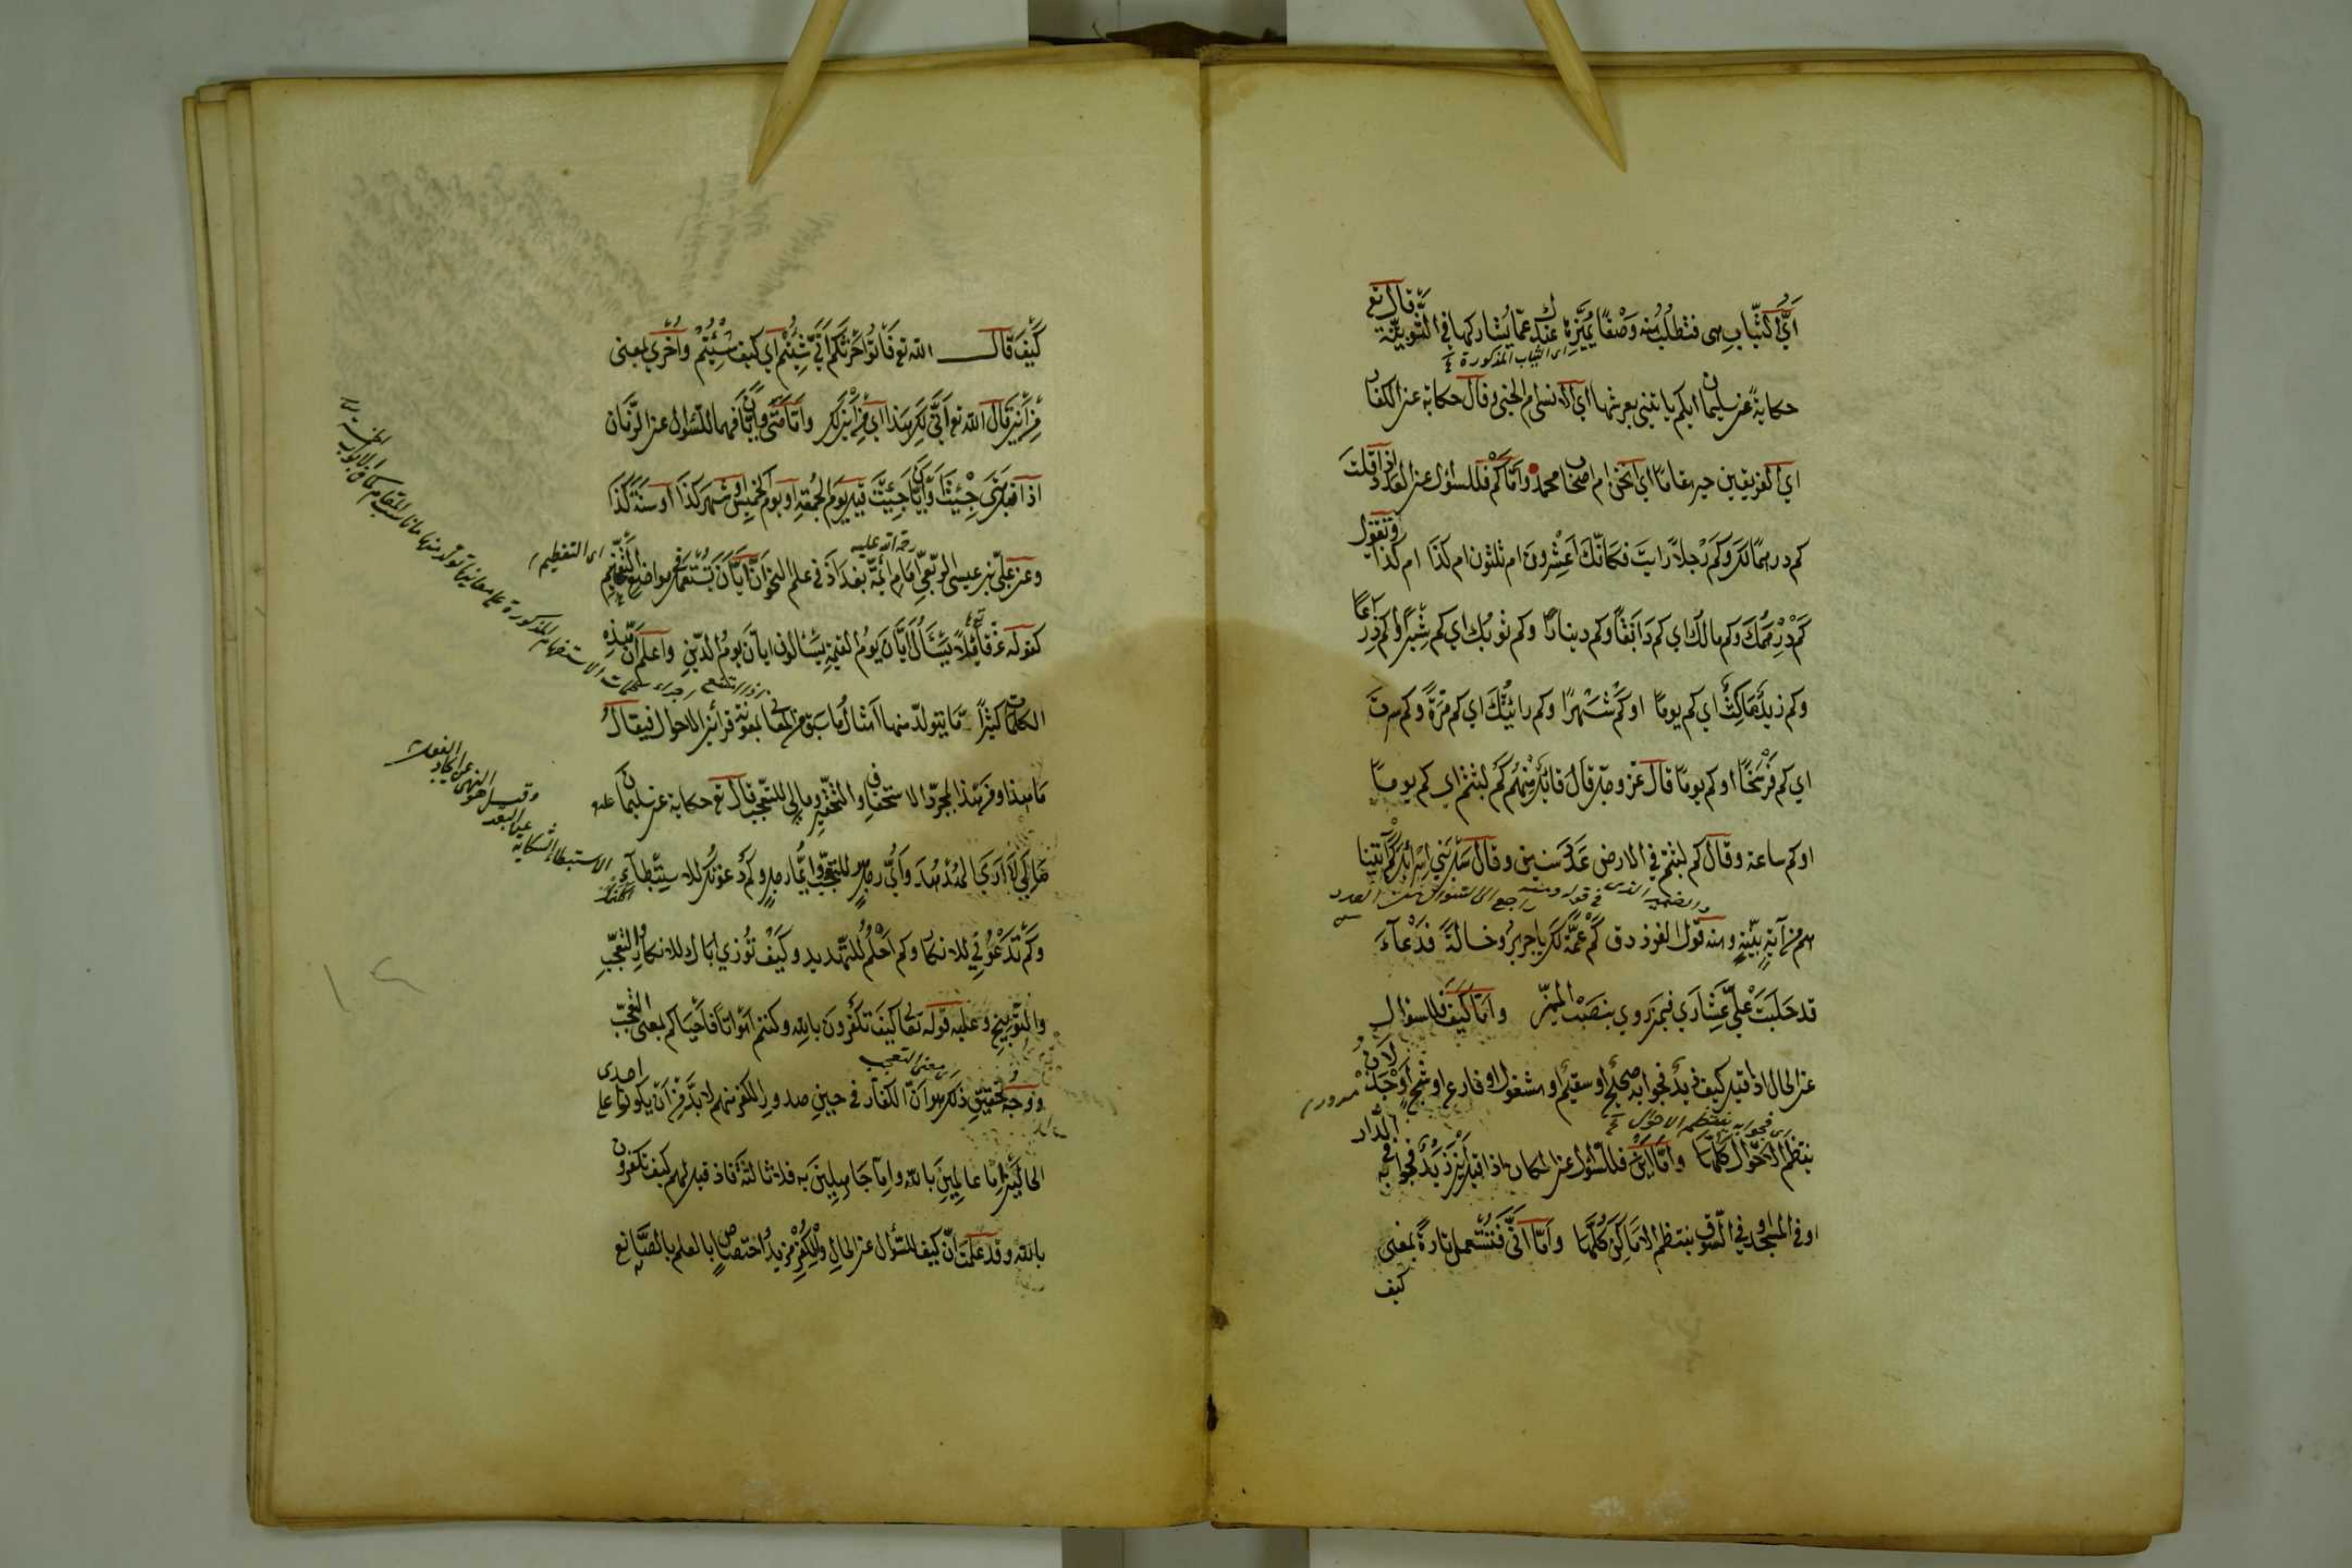 اَيُّ الثِّيَابِ هى فتطلُب منه وَصْفًا يُمَيِّزها عندك عمّا يُشاركها فى الثَّوبيّة قال تع
اى الثياب المذكورة
حكايةً عن سليمان ايكم ياتينى بعرشها اى الانسى ام الجنى وقال حكاية عن الكفار
اى الفريقين خير مقامًا اى انحن ام اصحاب محمد وَاَمَّا كَمْ فللسؤال عن العدد اذا قلت
كم درهمًا لَكَ وكَمْ رَجُلاً رايتَ فكانّك قلت اَعِشْرونَ ام ثلثون ام كذا ام كذا وتقول
كم دِرْهَمُكَ وكم مالُكَ اى كم دَانَقًا وكم دينارًا وكم ثوبُك اى كم شِبْرًا وكم ذراعًا
وكم زيدٌ مَاكِثٌ اى كم يومًا او كم شَهْرًا وكم رايتُكَ اى كم مَرّةً وكم سِرتَ
اى كم فَرْسَخًا او كم يومًا قال عزّ وجلّ قال قائل مِنْهُم كم لبثتم اى كم يومًا
او كم ساعة وقال كم لبثتم فى الارض عَدَدَ سنين وقال سَلْ بَنِى اِسْرَائيلَ كم اٰتينا
والضمير الذى فى قوله ومنه راجع الى السؤال عن العدد
هم من آيةٍ بيّنةٍ ومنه قول الفرزدق كَمْ عَمَّةً لَكَ يا جريرُ وخالةً فَدْعَآءَ
قد حَلَبَتْ عَلَىَّ عِشَارى فيمن رَوى بنصب المميّز واَمّا كَيْفَ فللسؤال
عن الحال اذا قيل كيف زيدٌ فجوابه صحيحٌ او سقيمٌ او مشغول او فارغ او شَجٍ او جَذْلانُ
مسرور
فجوابه ينتظم الاحوال
ينتظم الاحوال كلّها واَمّا اَيْنَ فللسؤال عن المكان اذا قيل اَيْنَ زيدٌ فجوابه فى الدَّار
او فى المسجد او فى السّوق ينتظم الاماكن كُلَّها واَمّا اَنّٰى فتُستعمل تارةً بمعنى
كيف
كَيْفَ قال الله تع فَأْتُوا حَرْثَكُم اَنّٰى شِئْتُم اى كيف شِئْتُم واُخْرىٰ بمعنى
مِنْ اَيْنَ قَال الله تع اَنّٰى لَكِ هذا اى مِنْ اَيْنَ لك واَمّا مَتٰى واَيّان فهما للسّؤال عن الزّمان
اذا قيل مَتٰى جِئْتَ او اَيّان جِئْتَ قيل يوم الجُمُعَةِ او يوم الخميس او شهر كذا او سنة كذا
رحمة الله عليه
وعن علىّ بن عيسى الرّبعىِّ امام ائمّة بغداد فى علم النحو اَنَّ اَيّان تُستعمل فى مواضع التَّفخيم
اى التعظيم
كقوله عزّ قائلاً يَسْئَلُ اَيّان يَوْمُ القيٰمةِ يَسْئلون ايّان يومُ الدّين واعلم انّ هذه
الكلمات كثيرًا مّا يتولّد منها امثالُ ما سبق من المعانى بمعونة قرائن الاحوال فيقال
مَا هذا ومَنْ هذا لمجرّد الاستخفاف والتحقير ومالى للتعجّب قال تع حكاية عن سليمان
مَا لِىَ لا اَرَى الهُدْهُدَ واَىُّ رجلٍ للتعجّب واَيُّما رجلٍ وكم دَعَوتُك للاستبطآء
وكم تدعونى للانكار وكم احْلُمُ للتّهديد وكيف تُؤذى اباك للانكار والتعجّب
والتّوبيخ وعليه قوله تعالى كيف تَكْفرون بالله وكنتم اَمْواتًا فأحيَاكم بمعنى التعجّب
معنى التعجب
ووجه تحقيق ذلك هو اَنّ الكفّار فى حين صدور الكفر منهم لا بدّ من اَنْ يكونوا على احدى
الحالتين اِمّا عالِمينَ بالله وامّا جَاهلينَ به فلا ثالثة فاذا قيل لهم كيف تكفرون
بالله وقد عَلِمْتَ اَنّ كيف للسّؤال عن الحالِ وللكفر مزيد اختصاصٍ بالعلم بالصّانع